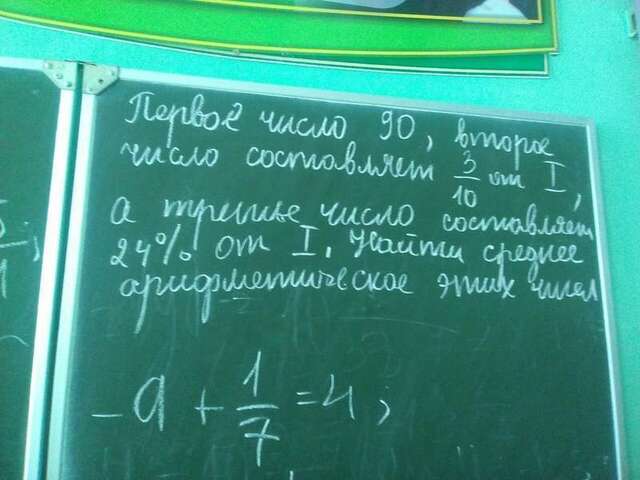 Первое число 90, второе
число составляет 3/10 от I,
а третье число составляет
24% от I. Найти среднее
арифметическое этих чисел
-a + 1/7 = 4;